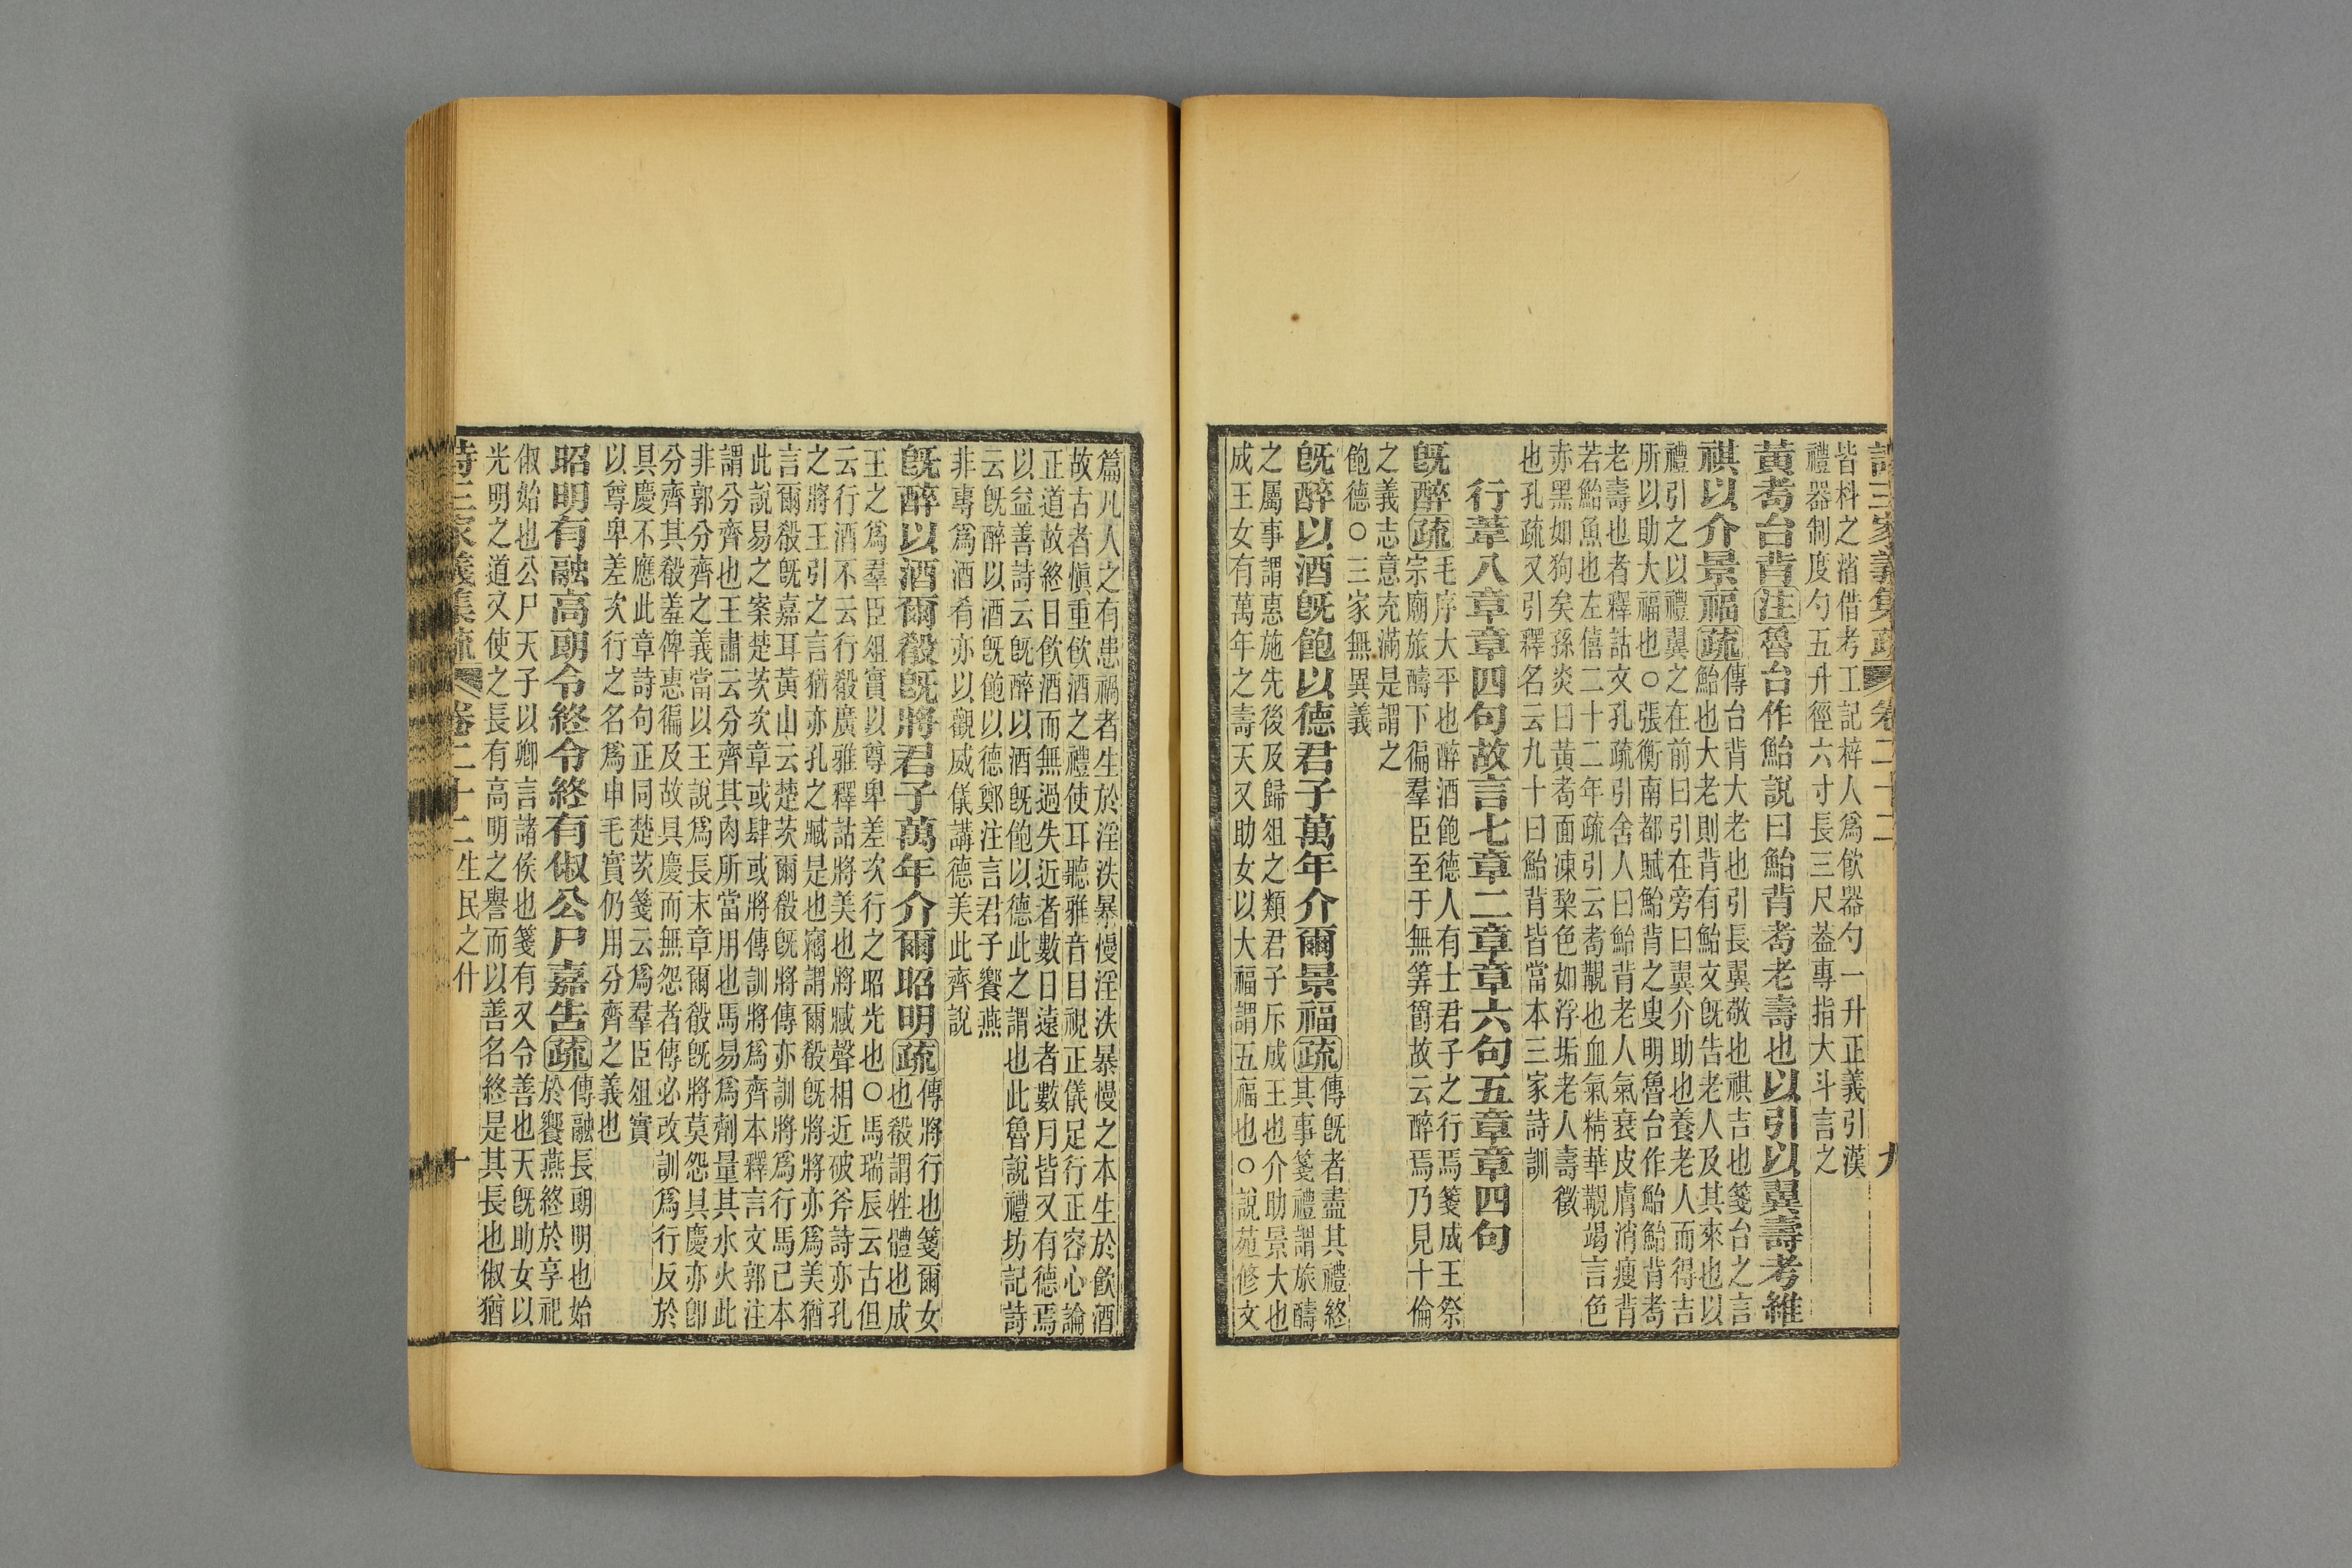 詩三家義集疏 卷二十二 九
皆枓之渻借考工記梓人爲飲器勺一升正義引漢
禮器制度勺五升徑六寸長三尺葢專指大斗言之
黃耇台背注魯台作鮐說曰鮐背耇老壽也以引以翼壽考維
祺以介景福疏傳台背大老也引長翼敬也祺吉也箋台之言
鮐也大老則背有鮐文旣告老人及其來也以
禮引之以禮翼之在前曰引在旁曰翼介助也養老人而得吉
所以助大福也○張衡南都賦鮐背之叟明魯台作鮐鮐背耇
老壽也者釋詁文孔疏引舍人曰鮐背老人氣衰皮膚消瘦背
若鮐魚也左僖二十二年疏引云耇覯也血氣精華覯竭言色
亦黑如狗矣孫炎曰黃耇面凍棃色如浮垢老人壽徵
也孔疏又引釋名云九十曰鮐背皆當本三家詩訓
行葦八章章四句故言七章二章章六句五章章四句
旣醉疏毛序大平也醉酒飽德人有士君子之行焉箋成王祭
宗廟旅醻下徧羣臣至于無筭爵故云醉焉乃見十倫
之義志意充滿是謂之
飽德○三家無異義
旣醉以酒旣飽以德君子萬年介爾景福疏傳旣者盡其禮終
其事箋禮謂旅醻
之屬事謂惠施先後及歸俎之類君子斥成王也介助景大也
成王女有萬年之壽天又助女以大福謂五福也○說苑修文
篇凡人之有患禍者生於淫泆暴慢淫泆暴慢之本生於飲酒
故古者愼重飲酒之禮使耳聽雅音目視正儀足行正容心論
正道故終日飲酒而無過失近者數日遠者數月皆又有德焉
以益善詩云旣醉以酒旣飽以德此之謂也此魯說禮坊記詩
云旣醉以酒旣飽以德鄭注言君子饗燕
非專爲酒肴亦以觀威儀講德美此齊說
旣醉以酒爾殽旣將君子萬年介爾昭明疏傳將行也箋爾女
也殽謂牲體也成
王之爲羣臣俎實以尊卑差次行之昭光也○馬瑞辰云古但
云行酒不云行殽廣雅釋詁將美也將臧聲相近破斧詩亦孔
之將王引之言猶亦孔之臧是也竊謂爾殽旣將將亦爲美猶
言爾殽旣嘉耳黃山云楚茨爾殽旣將傳亦訓將爲行馬己本
此說易之案楚茨次章或肆或將傳訓將爲齊本釋言文郭注
謂分齊也王肅云分齊其肉所當用也馬易爲劑量其水火此
非郭分齊之義當以王說爲長末章爾殽旣將莫怨具慶亦卽
分齊其殽羞俾惠徧及故具慶而無怨者傳必改訓爲行反於
具慶不應此章詩句正同楚茨箋云爲羣臣俎實
以尊卑差次行之名爲申毛實仍用分齊之義也
昭明有融高朗令終令終有俶公尸嘉告疏傳融長朗明也始
於饗燕終於享祀
俶始也公尸天子以卿言諸侯也箋有又令善也天旣助女以
光明之道又使之長有高明之譽而以善名終是其長也俶猶
詩三家義集疏 卷二十二 生民之什 十